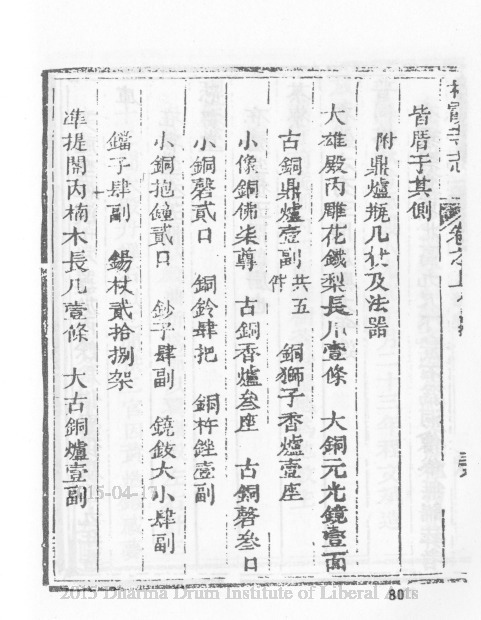 皆厝于其側
附鼎爐瓶几杖及法器
大雄殿丙雕花鐵梨長几壹條 大銅元光鏡壹面
古銅鼎爐壹副共五件 銅獅子香爐壹座
小像銅佛柒尊 古銅香爐叁座 古銅磬叁口
小銅磬貳口 銅鈴肆把 銅杵銼壹副
小銅搥鐘貳口 鈔子肆副 鐃鈸大小肆副
鐺子肆副 錫杖貳拾捌架
準提閣内楠木長几壹條 大古銅爐壹副
15-04-17
80
2015 Dharma Drum Institute of Liberal Arts